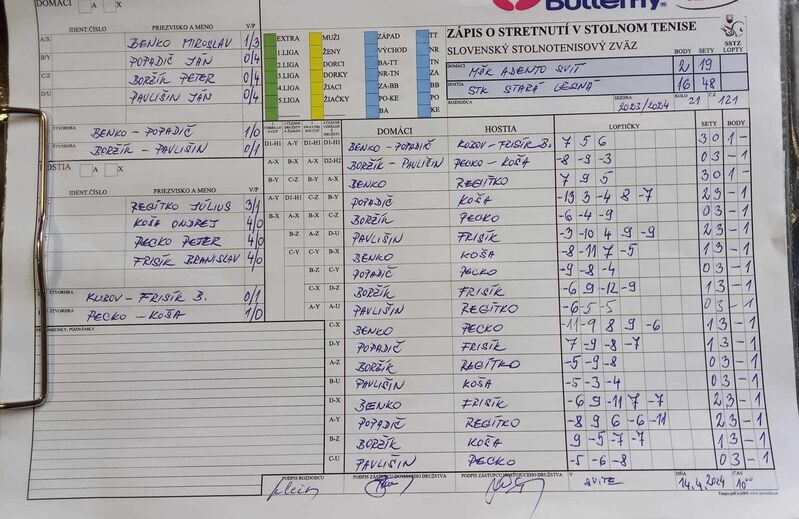 DOMÁCI A X
IDENT.ČÍSLO PRIEZVISKO A MENO V/P
A/X BENKO MIROSLAV 1/3
B/Y POPADIČ JÁN 0/4
C/Z BORŽÍK PETER 0/4
D/U PAVLIŠIN JÁN 0/4
ŠTVORHRA BENKO - POPADIČ 1/0
ŠTVORHRA BORŽÍK - PAVLIŠIN 0/1
HOSTIA A X
IDENT.ČÍSLO PRIEZVISKO A MENO V/P
REGITKO JÚLIUS 3/1
KOŠA ONDREJ 4/0
PECKO PETER 4/0
FRISÍK BRANISLAV 4/0
ŠTVORHRA KUBOV - FRISÍK B. 0/1
ŠTVORHRA PECKO - KOŠA 1/0
PRIPOMIENKY, POZNÁMKY
EXTRA MUŽI ZÁPAD TT
1.LIGA ŽENY VÝCHOD NR
2.LIGA DORCI BA-TT TN
3.LIGA DORKY NR-TN ZA
4.LIGA ŽIACI ZA-BB BB
5.LIGA ŽIAČKY PO-KE PO
BA KE
Butterfly
ZÁPIS O STRETNUTÍ V STOLNOM TENISE
SLOVENSKÝ STOLNOTENISOVÝ ZVÄZ BODY SETY SSTZ LOPTY
DOMÁCI MŠK ADENTO SVIT 2 19
HOSTIA STK STARÁ LESNÁ 16 48
ROZHODCA SEZONA 2023/2024 KOLO 21 Č.Z 121
DOMÁCI HOSTIA LOPTIČKY SETY BODY
D1-H1 A-Y A-Y D1-H1 BENKO - POPADIČ KUBOV - FRISÍK B. 7 5 6 3 0 1 -
A-X B-X A-X D2-H2 BORŽÍK - PAVLIŠIN PECKO - KOŠA -8 -9 -3 0 3 - 1
B-Y C-Z B-Y A-X BENKO REGÍTKO 7 9 5 3 0 1 -
A-Y D1-H1 C-Z B-Y POPADIČ KOŠA -13 3 -4 8 -7 2 3 - 1
B-X A-X B-X C-Z BORŽÍK PECKO -6 -4 -9 0 3 - 1
B-Z A-Z D-U PAVLIŠIN FRISÍK -3 -10 4 9 -9 2 3 - 1
C-Y C-Y B-X BENKO KOŠA -8 -11 7 -5 1 3 - 1
B-Z C-Y POPADIČ PECKO -9 -8 -4 0 3 - 1
C-X D-Z BORŽÍK FRISÍK -6 9 -12 -9 1 3 - 1
A-Y A-U PAVLIŠIN REGÍTKO -6 5 -5 0 3 - 1
C-X BENKO PECKO -11 -9 8 9 -6 1 3 - 1
D-Y POPADIČ FRISÍK 7 -9 -8 -7 1 3 - 1
A-Z BORŽÍK RAGÍTKO -5 -9 -8 0 3 - 1
B-U PAVLIŠIN KOŠA -5 -3 -4 0 3 - 1
D-X BENKO FRISÍK -6 9 -11 7 -7 2 3 - 1
A-Y POPADIČ REGÍTKO -8 9 6 -6 -11 2 3 - 1
B-Z BORŽÍK KOŠA 9 -5 -7 -7 1 3 - 1
C-U PAVLIŠIN PECKO -5 -6 -8 0 3 - 1
PODPIS ROZHODCU PODPIS ZÁSTUPCU DOMÁCEHO DRUŽSTVA PODPIS ZÁSTUPCU HOSŤUJÚCEHO DRUŽSTVA V SVITE DŇA 14.4.2024 ČAS 10⁰⁰